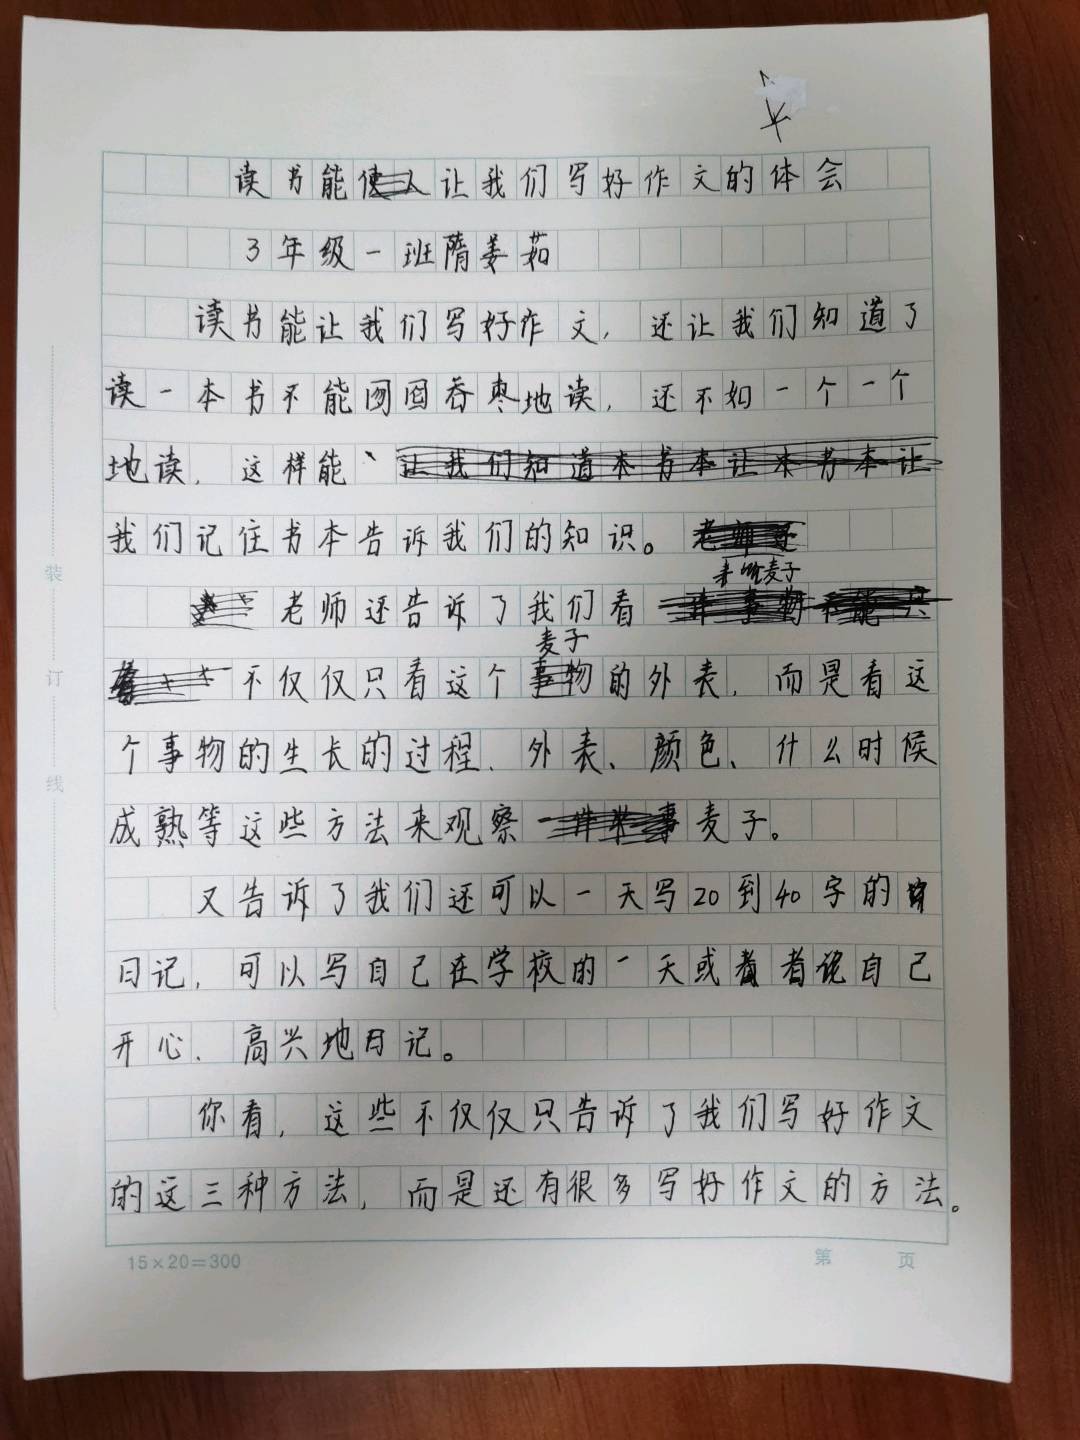 读书能让我们写好作文的体会
3年级一班隋姜茹
读书能让我们写好作文，还让我们知道了
读一本书不能囫囵吞枣地读，还不如一个一个
地读，这样能、让我们知道本书本让本书本让
我们记住书本告诉我们的知识。老师还
麦子
老师还告诉了我们看
麦子
不仅仅只看这个事物的外表，而是看这
个事物的生长的过程、外表、颜色、什么时候
成熟等这些方法来观察麦子。
又告诉了我们还可以一天写20到40字的
日记，可以写自己在学校的一天或者自己
开心、高兴地日记。
你看，这些不仅仅只告诉了我们写好作文
的这三种方法，而是还有很多写好作文的方法。
装
订
线
15×20=300
第 页